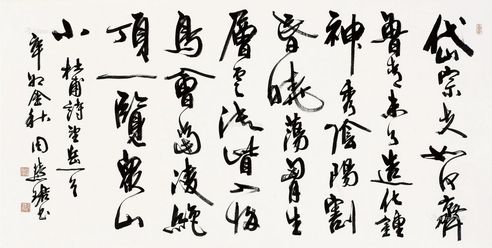 岱宗夫如何齊
魯青未了造化鍾
神秀陰陽割
昏曉蕩胸生
層雲決眥入歸
鳥會當凌絕
頂一覽眾山
小 杜甫詩望岳一首
辛卯金秋周書